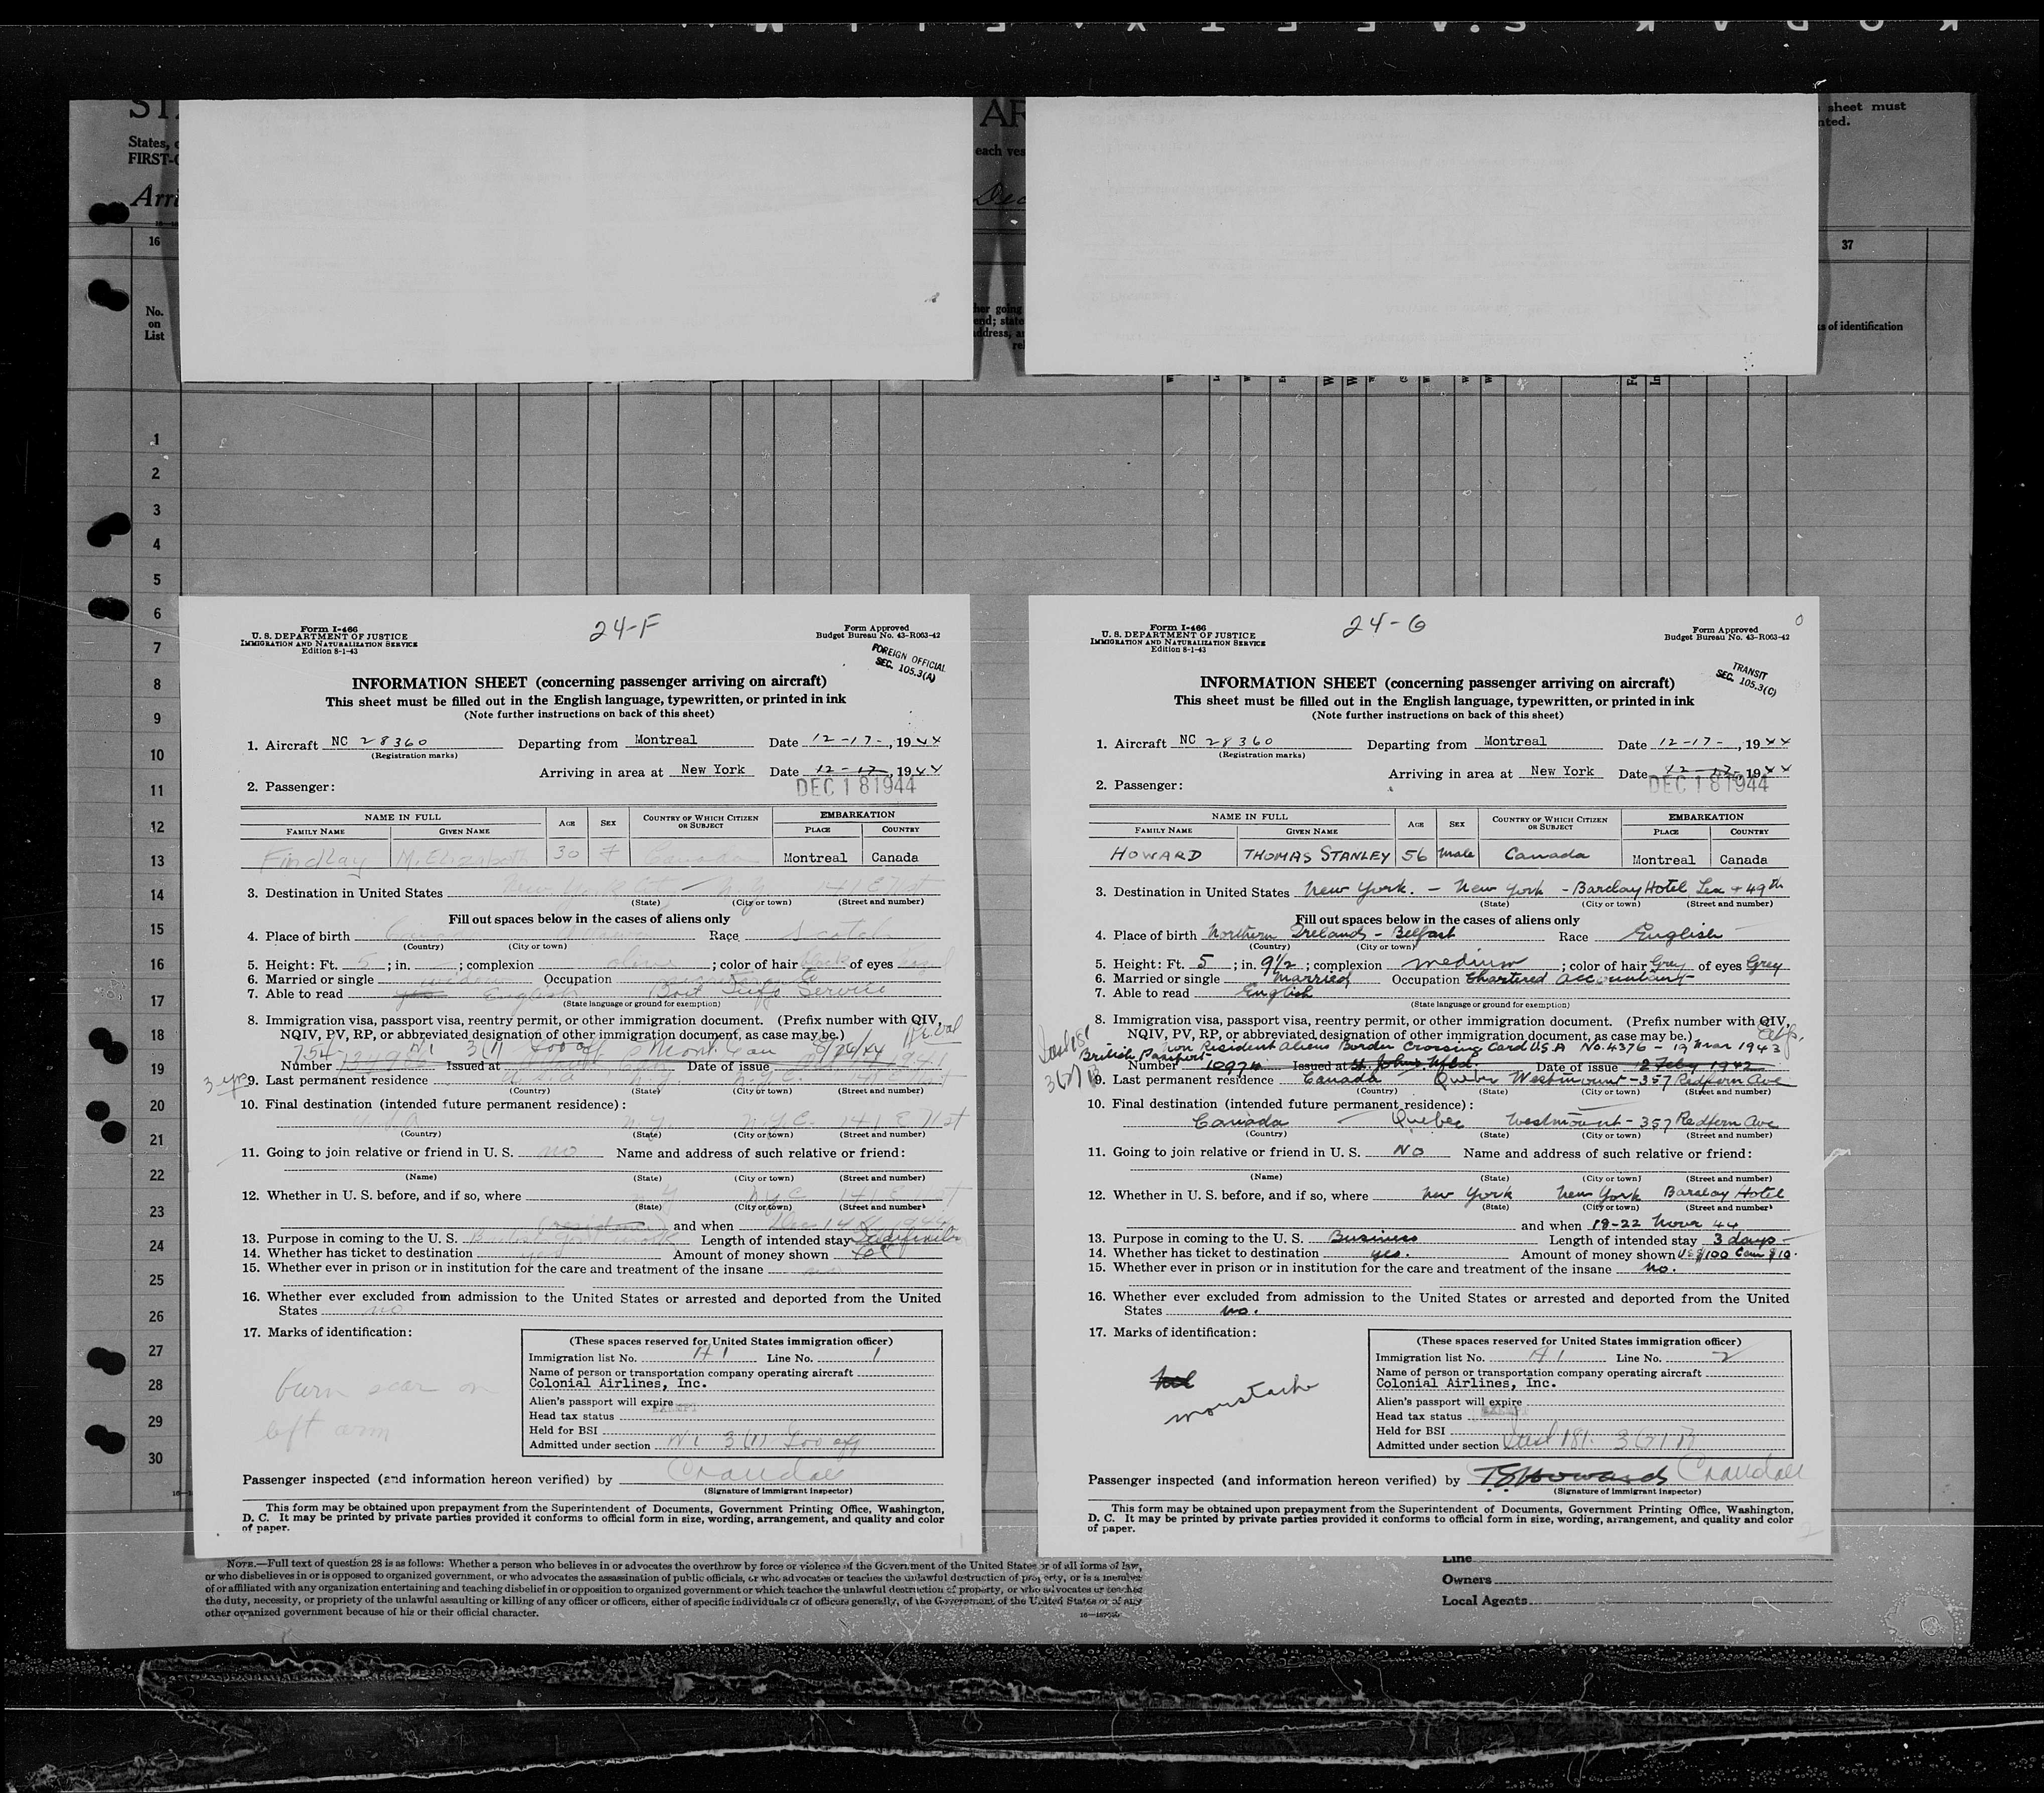 KODAK SAFETY FILM
ST
AR
sheet must
nted.
States,
FIRST-C
each ves
Arri
Dec
16
37
No.
on
List
her going
end; state
address, a
rel
s of identification
1
2
3
4
5
6
7
8
9
10
11
12
13
14
15
16
17
18
19
20
21
22
23
24
25
26
27
28
29
30
Form I-466
U. S. DEPARTMENT OF JUSTICE
IMMIGRATION AND NATURALIZATION SERVICE
Edition 8-1-43
24-F
Form Approved
Budget Bureau No. 43-R063-42
FOREIGN OFFICIAL
SEC. 105.3(A)
INFORMATION SHEET (concerning passenger arriving on aircraft)
This sheet must be filled out in the English language, typewritten, or printed in ink
(Note further instructions on back of this sheet)
1. Aircraft NC 28360 Departing from Montreal Date 12-17-, 1944
(Registration marks)
Arriving in area at New York Date 12-17-, 1944
2. Passenger: DEC 18 1944
NAME IN FULL AGE SEX COUNTRY OF WHICH CITIZEN OR SUBJECT EMBARKATION
FAMILY NAME GIVEN NAME PLACE COUNTRY
Findlay M. Elizabeth 30 F Canada Montreal Canada
3. Destination in United States New York City - N.Y. 141 E 71 st
(State) (City or town) (Street and number)
Fill out spaces below in the cases of aliens only
4. Place of birth Canada Ottawa Race Scotch
(Country) (City or town)
5. Height: Ft. 5; in. ; complexion olive; color of hair black of eyes hazel
6. Married or single widow Occupation
7. Able to read yes English Brit Info Service
(State language or ground for exemption)
8. Immigration visa, passport visa, reentry permit, or other immigration document. (Prefix number with QIV,
NQIV, PV, RP, or abbreviated designation of other immigration document, as case may be.)
3(1) Mont. Can 8/26/44
Number Issued at Date of issue
3 yrs
9. Last permanent residence U.S.A N.Y. N.Y.C.
(Country) (State) (City or town) (Street and number)
10. Final destination (intended future permanent residence):
U.S.A N.Y. N.Y.C. 141 E 71 st
(Country) (State) (City or town) (Street and number)
11. Going to join relative or friend in U. S. no Name and address of such relative or friend:
(Name) (State) (City or town) (Street and number)
12. Whether in U. S. before, and if so, where N.Y. N.Y.C. 141 E 71 st
(State) (City or town) (Street and number)
(resident) and when Dec 14 1944
13. Purpose in coming to the U. S. British Govt work Length of intended stay Indefinite
14. Whether has ticket to destination yes Amount of money shown
15. Whether ever in prison or in institution for the care and treatment of the insane no
16. Whether ever excluded from admission to the United States or arrested and deported from the United
States no
17. Marks of identification:
burn scar on
left arm
(These spaces reserved for United States immigration officer)
Immigration list No. H 1 Line No. 1
Name of person or transportation company operating aircraft
Colonial Airlines, Inc.
Alien's passport will expire
EXEMPT
Head tax status
Held for BSI
Admitted under section 3(1)
Passenger inspected (and information hereon verified) by Crandall
(Signature of immigrant inspector)
This form may be obtained upon prepayment from the Superintendent of Documents, Government Printing Office, Washington,
D. C. It may be printed by private parties provided it conforms to official form in size, wording, arrangement, and quality and color
of paper.
Form I-466
U. S. DEPARTMENT OF JUSTICE
IMMIGRATION AND NATURALIZATION SERVICE
Edition 8-1-43
24-G
Form Approved
Budget Bureau No. 43-R063-42
TRANSIT
SEC. 105.3(C)
INFORMATION SHEET (concerning passenger arriving on aircraft)
This sheet must be filled out in the English language, typewritten, or printed in ink
(Note further instructions on back of this sheet)
1. Aircraft NC 28360 Departing from Montreal Date 12-17-, 1944
(Registration marks)
Arriving in area at New York Date 12-17-, 1944
2. Passenger: DEC 18 1944
NAME IN FULL AGE SEX COUNTRY OF WHICH CITIZEN OR SUBJECT EMBARKATION
FAMILY NAME GIVEN NAME PLACE COUNTRY
HOWARD THOMAS STANLEY 56 Male Canada Montreal Canada
3. Destination in United States New York. - New York - Barclay Hotel Lex + 49th
(State) (City or town) (Street and number)
Fill out spaces below in the cases of aliens only
4. Place of birth Northern Ireland - Belfast Race English
(Country) (City or town)
5. Height: Ft. 5; in. 9 1/2; complexion medium; color of hair Grey of eyes Grey
6. Married or single Married Occupation Chartered Accountant
7. Able to read English
(State language or ground for exemption)
8. Immigration visa, passport visa, reentry permit, or other immigration document. (Prefix number with QIV,
NQIV, PV, RP, or abbreviated designation of other immigration document, as case may be.)
Non Resident Aliens Border Crossing Card U.S.A No. 4376 - 19 Mar 1943
British Passport
Number 10976 Issued at St. John's Nfld. Date of issue 2 Feby 1942
9. Last permanent residence Canada Quebec Westmount - 357 Redfern Ave
(Country) (State) (City or town) (Street and number)
10. Final destination (intended future permanent residence):
Canada - Quebec Westmount - 357 Redfern Ave
(Country) (State) (City or town) (Street and number)
11. Going to join relative or friend in U. S. NO Name and address of such relative or friend:
(Name) (State) (City or town) (Street and number)
12. Whether in U. S. before, and if so, where New York New York Barclay Hotel
(State) (City or town) (Street and number)
and when 19-22 Novr 44
13. Purpose in coming to the U. S. Business Length of intended stay 3 days -
14. Whether has ticket to destination yes. Amount of money shown US $100 Can $10.
15. Whether ever in prison or in institution for the care and treatment of the insane no.
16. Whether ever excluded from admission to the United States or arrested and deported from the United
States no.
17. Marks of identification:
moustache
(These spaces reserved for United States immigration officer)
Immigration list No. H 1 Line No. 2
Name of person or transportation company operating aircraft
Colonial Airlines, Inc.
Alien's passport will expire
EXEMPT
Head tax status
Held for BSI
Admitted under section
Passenger inspected (and information hereon verified) by T.S. Howard Crandall
(Signature of immigrant inspector)
This form may be obtained upon prepayment from the Superintendent of Documents, Government Printing Office, Washington,
D. C. It may be printed by private parties provided it conforms to official form in size, wording, arrangement, and quality and color
of paper.
NOTE.—Full text of question 28 is as follows: Whether a person who believes in or advocates the overthrow by force or violence of the Government of the United States or of all forms of law,
or who disbelieves in or is opposed to organized government, or who advocates the assassination of public officials, or who advocates or teaches the unlawful destruction of property, or is a member
of or affiliated with any organization entertaining and teaching disbelief in or opposition to organized government or which teaches the unlawful destruction of property, or who advocates or teaches
the duty, necessity, or propriety of the unlawful assaulting or killing of any officer or officers, either of specific individuals or of officers generally, of the Government of the United States or of any
other organized government because of his or their official character.
Line
Owners
Local Agents